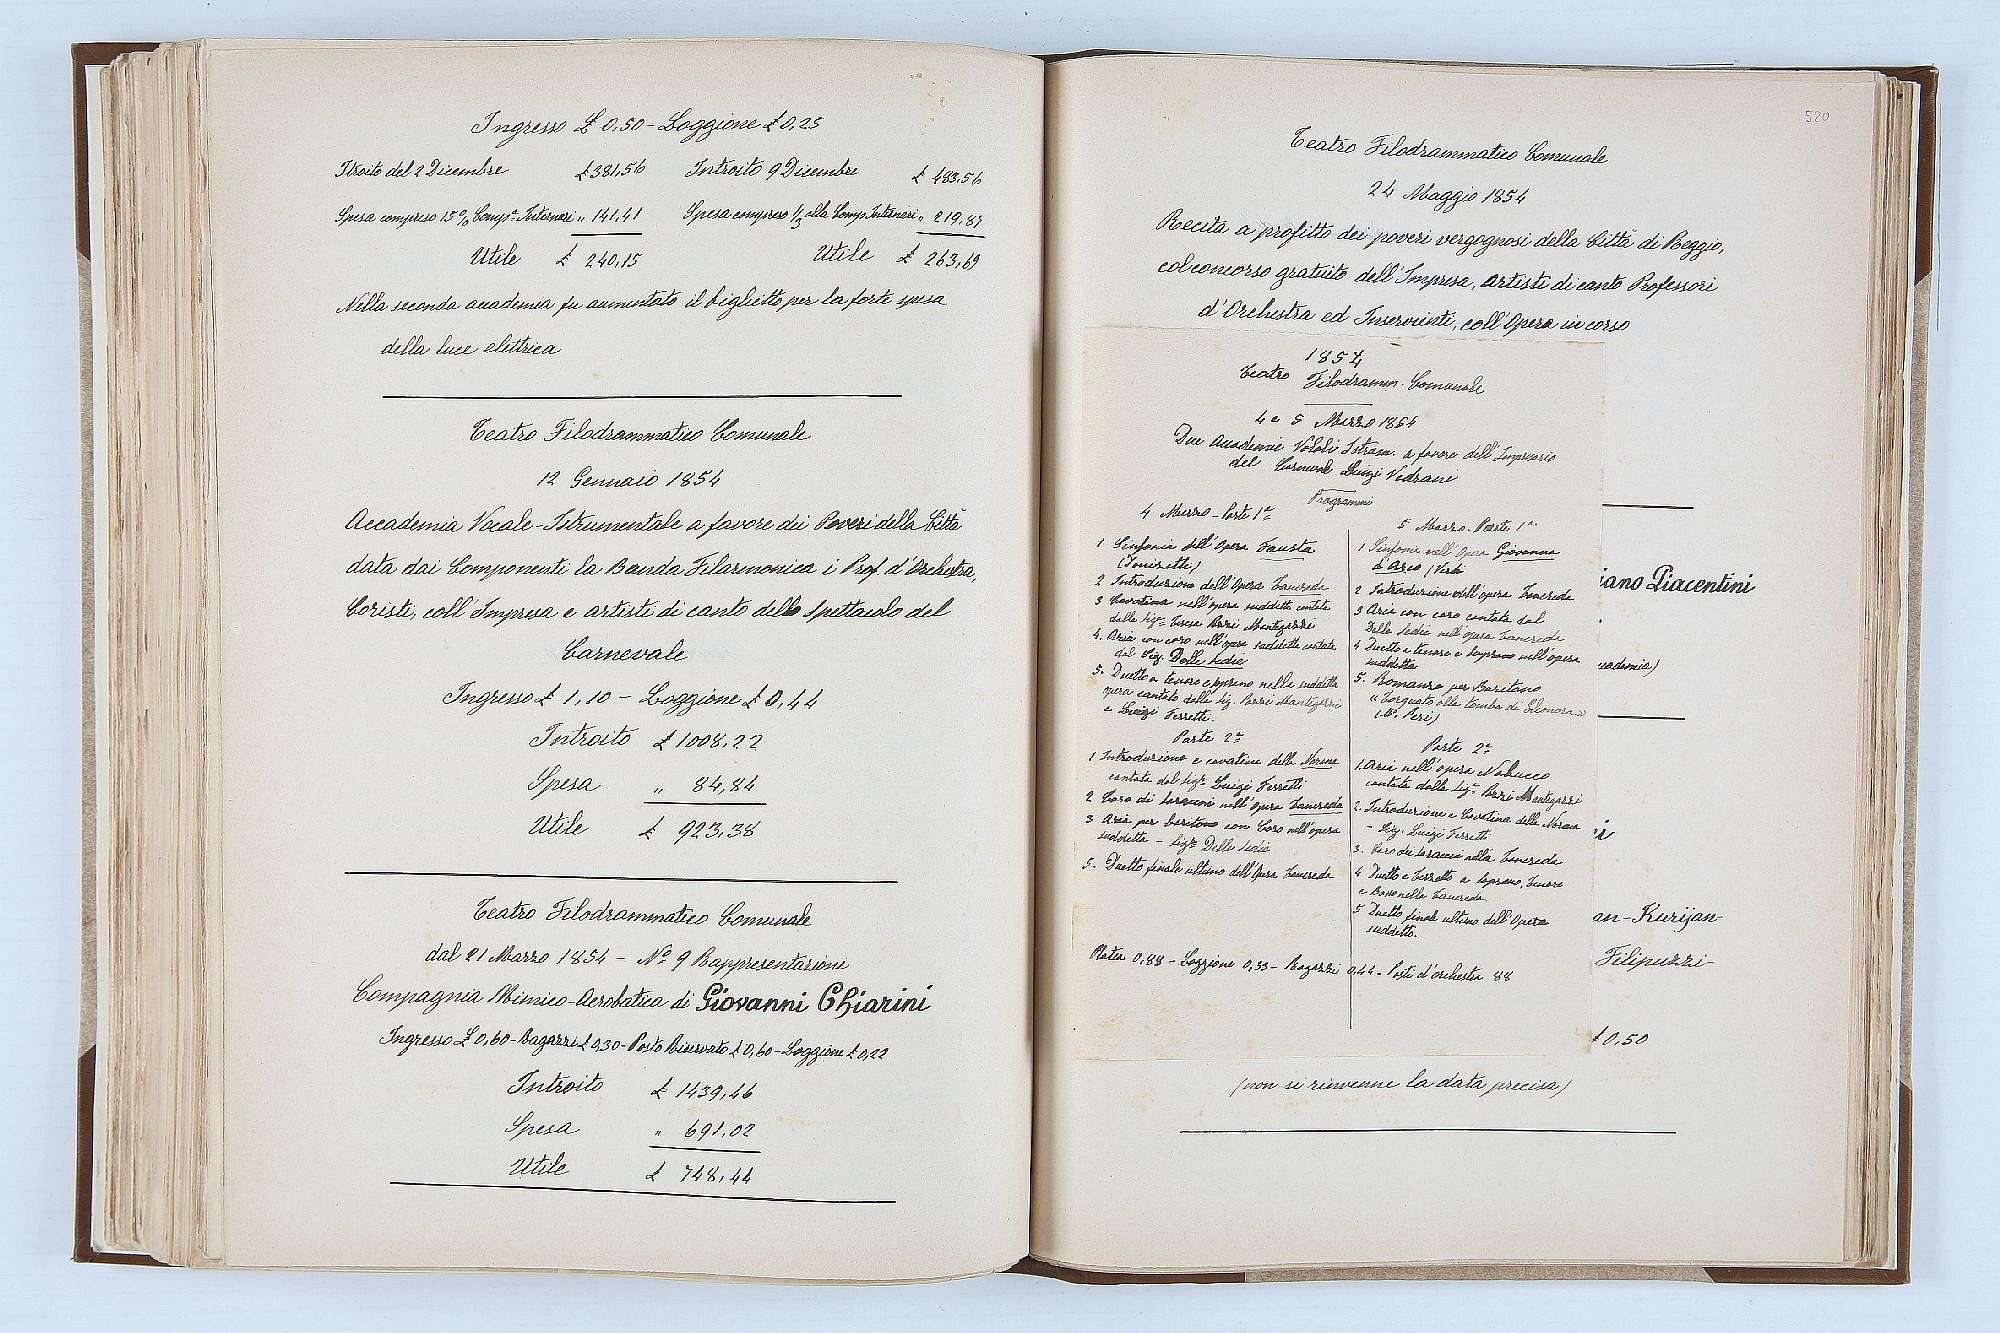 Ingresso £ 0,50 - Loggione £ 0,25
Itroito del 2 Dicembre £ 381,56 Introito 9 Dicembre £ 483,56
Spesa compreso 15% Comp.ª Internari „ 141,41 Spesa compreso 1/3 alla Comp. Internari „ 219,87
Utile £ 240,15 Utile £ 263,69
Nella seconda accademia fu aumentato il biglietto per la forte spesa
della luce elettrica
Teatro Filodrammatico Comunale
12 Gennaio 1854
Accademia Vocale-Istrumentale a favore dei Poveri della Città
data dai Componenti la Banda Filarmonica i Prof. d'Orchestra,
Coristi, coll'Impresa e artisti di canto dello Spettacolo del
Carnevale
Ingresso £ 1,10 - Loggione £ 0,44
Introito £ 1008,22
Spesa „ 84,84
Utile £ 923,38
Teatro Filodrammatico Comunale
dal 21 Marzo 1854 - Nº 9 Rappresentazioni
Compagnia Mimico-Acrobatica di Giovanni Chiarini
Ingresso £ 0,60 - Ragazzi £ 0,30 - Posto Riservato £ 0,60 - Loggione £ 0,22
Introito £ 1439,46
Spesa „ 691,02
Utile £ 748,44
520
Teatro Filodrammatico Comunale
24 Maggio 1854
Recita a profitto dei poveri vergognosi della Città di Reggio,
col concorso gratuito dell'Impresa, artisti di canto Professori
d'Orchestra ed Inservienti, coll'Opera in corso
1854
Teatro Filodramm. Comunale
4 e 5 Marzo 1854
Due Accademie Vocali Istrum. a favore dell'Impresario
del Carneval Luigi Vedrani
Programmi
4 Marzo - Parte 1ª
1 Sinfonia dell'Opera Fausta
(Donizetti)
2 Introduzione dell'Opera Tancreda
3 Cavatina nell'opera suddetta cantata
dalla Sig.ra Teresa Pozzi Mantegazzi
4. Aria con coro nell'opera suddetta cantata
dal Sig. Delle Sedie
5. Duetto a tenore e soprano nella suddetta
opera cantato dalla Sig. Pozzi Mantegazzi
e Luigi Ferretti.
Parte 2ª
1 Introduzione e cavatina della Norma
cantata dal Sig.r Luigi Ferretti
2 Coro di Saraceni nell'Opera Tancreda
3 Aria per baritono con Coro nell'opera
suddetta - Sig.r Delle Sedie
5. Duetto finale ultimo dell'Opera Tancreda
5 Marzo - Parte 1ª
1 Sinfonia nell'Opera Giovanna
d'Arco (Verdi
2 Introduzione dell'opera Tancreda
3 Aria con coro cantata dal
Delle Sedie nell'opera Tancreda
4 Duetto a tenore e soprano nell'opera
suddetta
5. Romanza per Baritono
"Torquato alla tomba di Eleonora"
(Mº. Peri)
Parte 2ª
1. Aria nell'opera Nabucco
cantata dalla Sig.ª Pozzi Mantegazzi
2. Introduzione e Cavatina della Norma
- Sig. Luigi Ferretti
3. Coro di Saraceni nella Tancreda
4 Duetto e Terzetto a soprano, tenore
e Basso nella Tancreda
5 Duetto finale ultimo dell'Opera
suddetta.
Platea 0,88 - Loggione 0,33 - Ragazzi 0,44 - Posti d'orchestra 88
iano Piacentini
cademia)
an-Kurijan-
Filipuzzi-
£ 0,50
(non si rinvenne la data precisa)